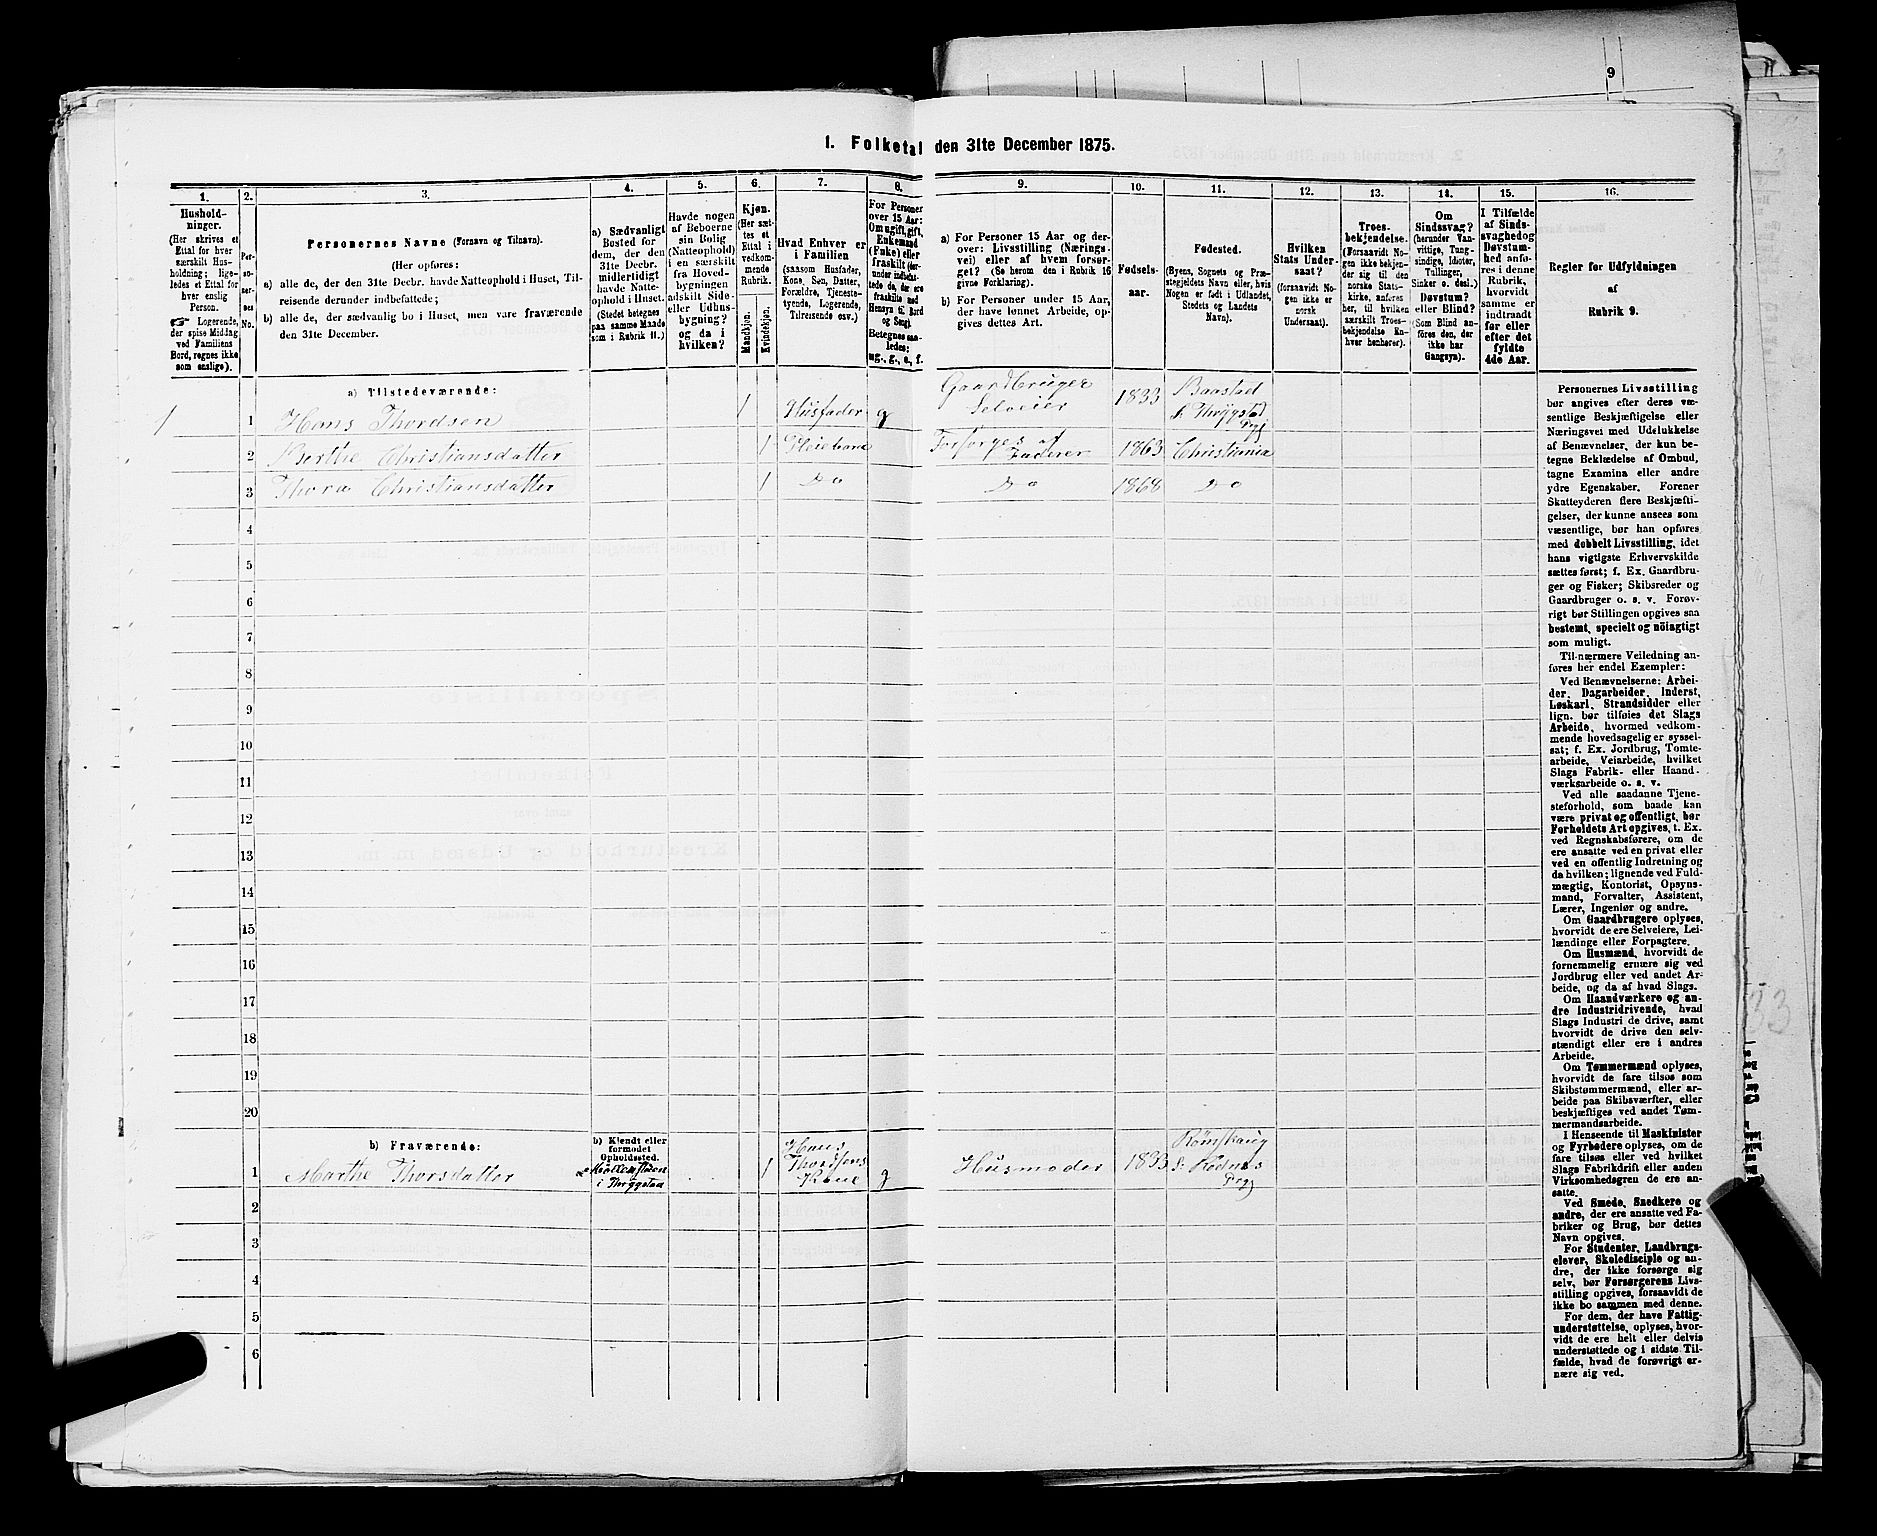 9
1. Folketal den 31te December 1875.
1.
2.
3.
4.
5.
6.
7.
8.
9.
10.
11.
12.
13.
14.
15.
16.
Hushold-
ninger.
(Her skrives et
Ettal for hver
særskilt Hus-
holdning; lige-
ledes et Ettal for
hver enslig
Person.
☞ Logerende,
der spise Middag
ved Familiens
Bord, regnes ikke
som enslige).
Per-
so-
ner-
nes
No.
Personernes Navne (Fornavn og Tilnavn).
(Her opføres:
a) alle de, der den 31te Decbr. havde Natteophold i Huset, Til-
reisende derunder indbefattede;
b) alle de, der sædvanlig bo i Huset, men vare fraværende
den 31te December.
a) Sædvanligt
Bosted for
dem, der den
31te Decbr.
midlertidigt
havde Natte-
ophold i Huset.
(Stedet betegnes
paa samme Maade
som i Rubrik 11.)
Havde nogen
af Beboerne
sin Bolig
(Natteophold)
i en særskilt
fra Hoved-
bygningen
adskilt Side-
eller Udhus-
bygning? og da i
hvilken?
Kjøn.
(Her sæt-
tes et
Ettal i
vedkom-
mende
Rubrik.
Mandkjøn.
Kvindekjøn.
Hvad Enhver er
i Familien
(saasom Husfader,
Kone, Søn, Datter,
Forældre, Tjeneste-
tyende, Logerende,
Tilreisende osv.)
For Personer
over 15 Aar:
Om ugift, gift,
Enkemand
(Enke) eller
fraskilt (der-
under indbefat-
tede de, der ere
fraskilte med
Hensyn til Bord
og Seng).
Betegnes saa-
ledes:
ug., g., e., f.
a) For Personer 15 Aar og der-
over: Livsstilling (Nærings-
vei) eller af hvem forsør-
get? (Se herom den i Rubrik 16
givne Forklaring).
b) For Personer under 15 Aar,
der have lønnet Arbeide, op-
gives dettes Art.
Fødsels-
aar.
Fødested.
(Byens, Sognets og Præ-
stegjeldets Navn eller, hvis
Nogen er født i Udlandet,
Stedets og Landets
Navn).
Hvilken
Stats Under-
saat?
(forsaavidt No-
gen ikke er
norsk
Undersaat).
Troes-
bekjendelse.
(Forsaavidt No-
gen ikke bekjen-
der sig til den
norske Stats-
kirke, anføres
her, til hvilken
særskilt Troes-
bekjendelse En-
hver henhører).
Om
Sindssvag?
(herunder Van-
vittige, Tung-
sindige, Idioter,
Tullinger,
Sinker o. desl.)
Døvstum?
eller Blind?
(Som Blind an-
føres den, der
ikke har
Gangsyn).
I Tilfælde
af Sinds-
svaghed og
Døvstum-
hed anfø-
res i denne
Rubrik,
hvorvidt
samme er
indtraadt
før eller
efter det
fyldte
4de Aar.
Regler for Udfyldningen
af
Rubrik 9.
a) Tilstedeværende:
1 1 Hans Thordsen 1 Husfader g Gaardbruger Selveier 1833 Baastad i Thrygstad Prgj
2 Berthe Christiansdatter 1 Pleiebarn Forsørges af Faderen 1863 Christiania
3 Thora Christiansdatter 1 Do Do 1868 Do
4
5
6
7
8
9
10
11
12
13
14
15
16
17
18
19
20
b) Fraværende:
b) Kjendt eller
formodet
Opholdssted.
1 Marthe Thorsdatter i Thrygstad 1 Hans Thordsens Kone g Husmoder 1833 Rømskaug i Rødnæs Prgj
2
3
4
5
6
Personernes Livsstilling
bør angives efter deres væ-
sentlige Beskjæftigelse eller
Næringsvei med Udelukkelse
af Benævnelser, der kun be-
tegne Beklædelse af Ombud,
tagne Examina eller andre
ydre Egenskaber. Forener
Skatteyderen flere Beskjæfti-
gelser, der kunne ansees som
væsentlige, bør han opføres
med dobbelt Livsstilling, idet
hans vigtigste Erhvervskilde
sættes først; f. Ex. Gaardbru-
ger og Fisker; Skibsreder og
Gaardbruger o. s. v. Forøv-
rigt bør Stillingen opgives saa
bestemt, specielt og nöiagtigt
som muligt.
Til nærmere Veiledning an-
føres her endel Exempler:
Ved Benævnelserne: Arbei-
der, Dagarbeider, Inderst,
Løskarl, Strandsidder eller
lign. bør tilføies det Slags
Arbeide, hvormed vedkom-
mende hovedsagelig er syssel-
sat; f. Ex. Jordbrug, Tomte-
arbeide, Veiarbeide, hvilket
Slags Fabrik- eller Haand-
værksarbeide o. s. v.
Ved alle saadanne Tjene-
steforhold, som baade kan
være privat og offentligt, bør
Forholdets Art opgives, t. Ex.
ved Regnskabsførere, om de
ere ansatte ved en privat eller
ved en offentlig Indretning og
da hvilken; lignende ved Fuld-
mægtig, Kontorist, Opsyns-
mand, Forvalter, Assistent,
Lærer, Ingeniør og andre.
Om Gaardbrugere oplyses,
hvorvidt de ere Selveiere, Lei-
lændinge eller Forpagtere.
Om Husmænd, hvorvidt de
fornemmelig ernære sig ved
Jordbrug eller ved andet Ar-
beide, og da af hvad Slags.
Om Haandværkere og an-
dre Industridrivende, hvad
Slags Industri de drive, samt
hvorvidt de drive den selv-
stændigt eller ere i andres
Arbeide.
Om Tømmermænd oplyses,
hvorvidt de fare tilsøs som
Skibstømmermænd, eller ar-
beide paa Skibsværfter, eller
beskjæftiges ved andet Tøm-
mermandsarbeide.
I Henseende til Maskinister
og Fyrbødere oplyses, om de
fare tilsøs eller ved hvilket
Slags Fabrikdrift eller anden
Virksomhedsgren de ere an-
satte.
Ved Smede, Snedkere og
andre, der ere ansatte ved Fa-
briker og Brug, bør dettes
Navn opgives.
For Studenter, Landbrugs-
elever, Skoledisciple og an-
dre, der ikke forsørge sig
selv, bør Forsørgerens Livs-
stilling opgives, forsaavidt de
ikke bo sammen med denne.
For dem, der have Fattig-
understøttelse, oplyses, hvor-
vidt de ere helt eller delvis
understøttede og i sidste Til-
fælde, hvad de forøvrigt er-
nære sig ved.
33